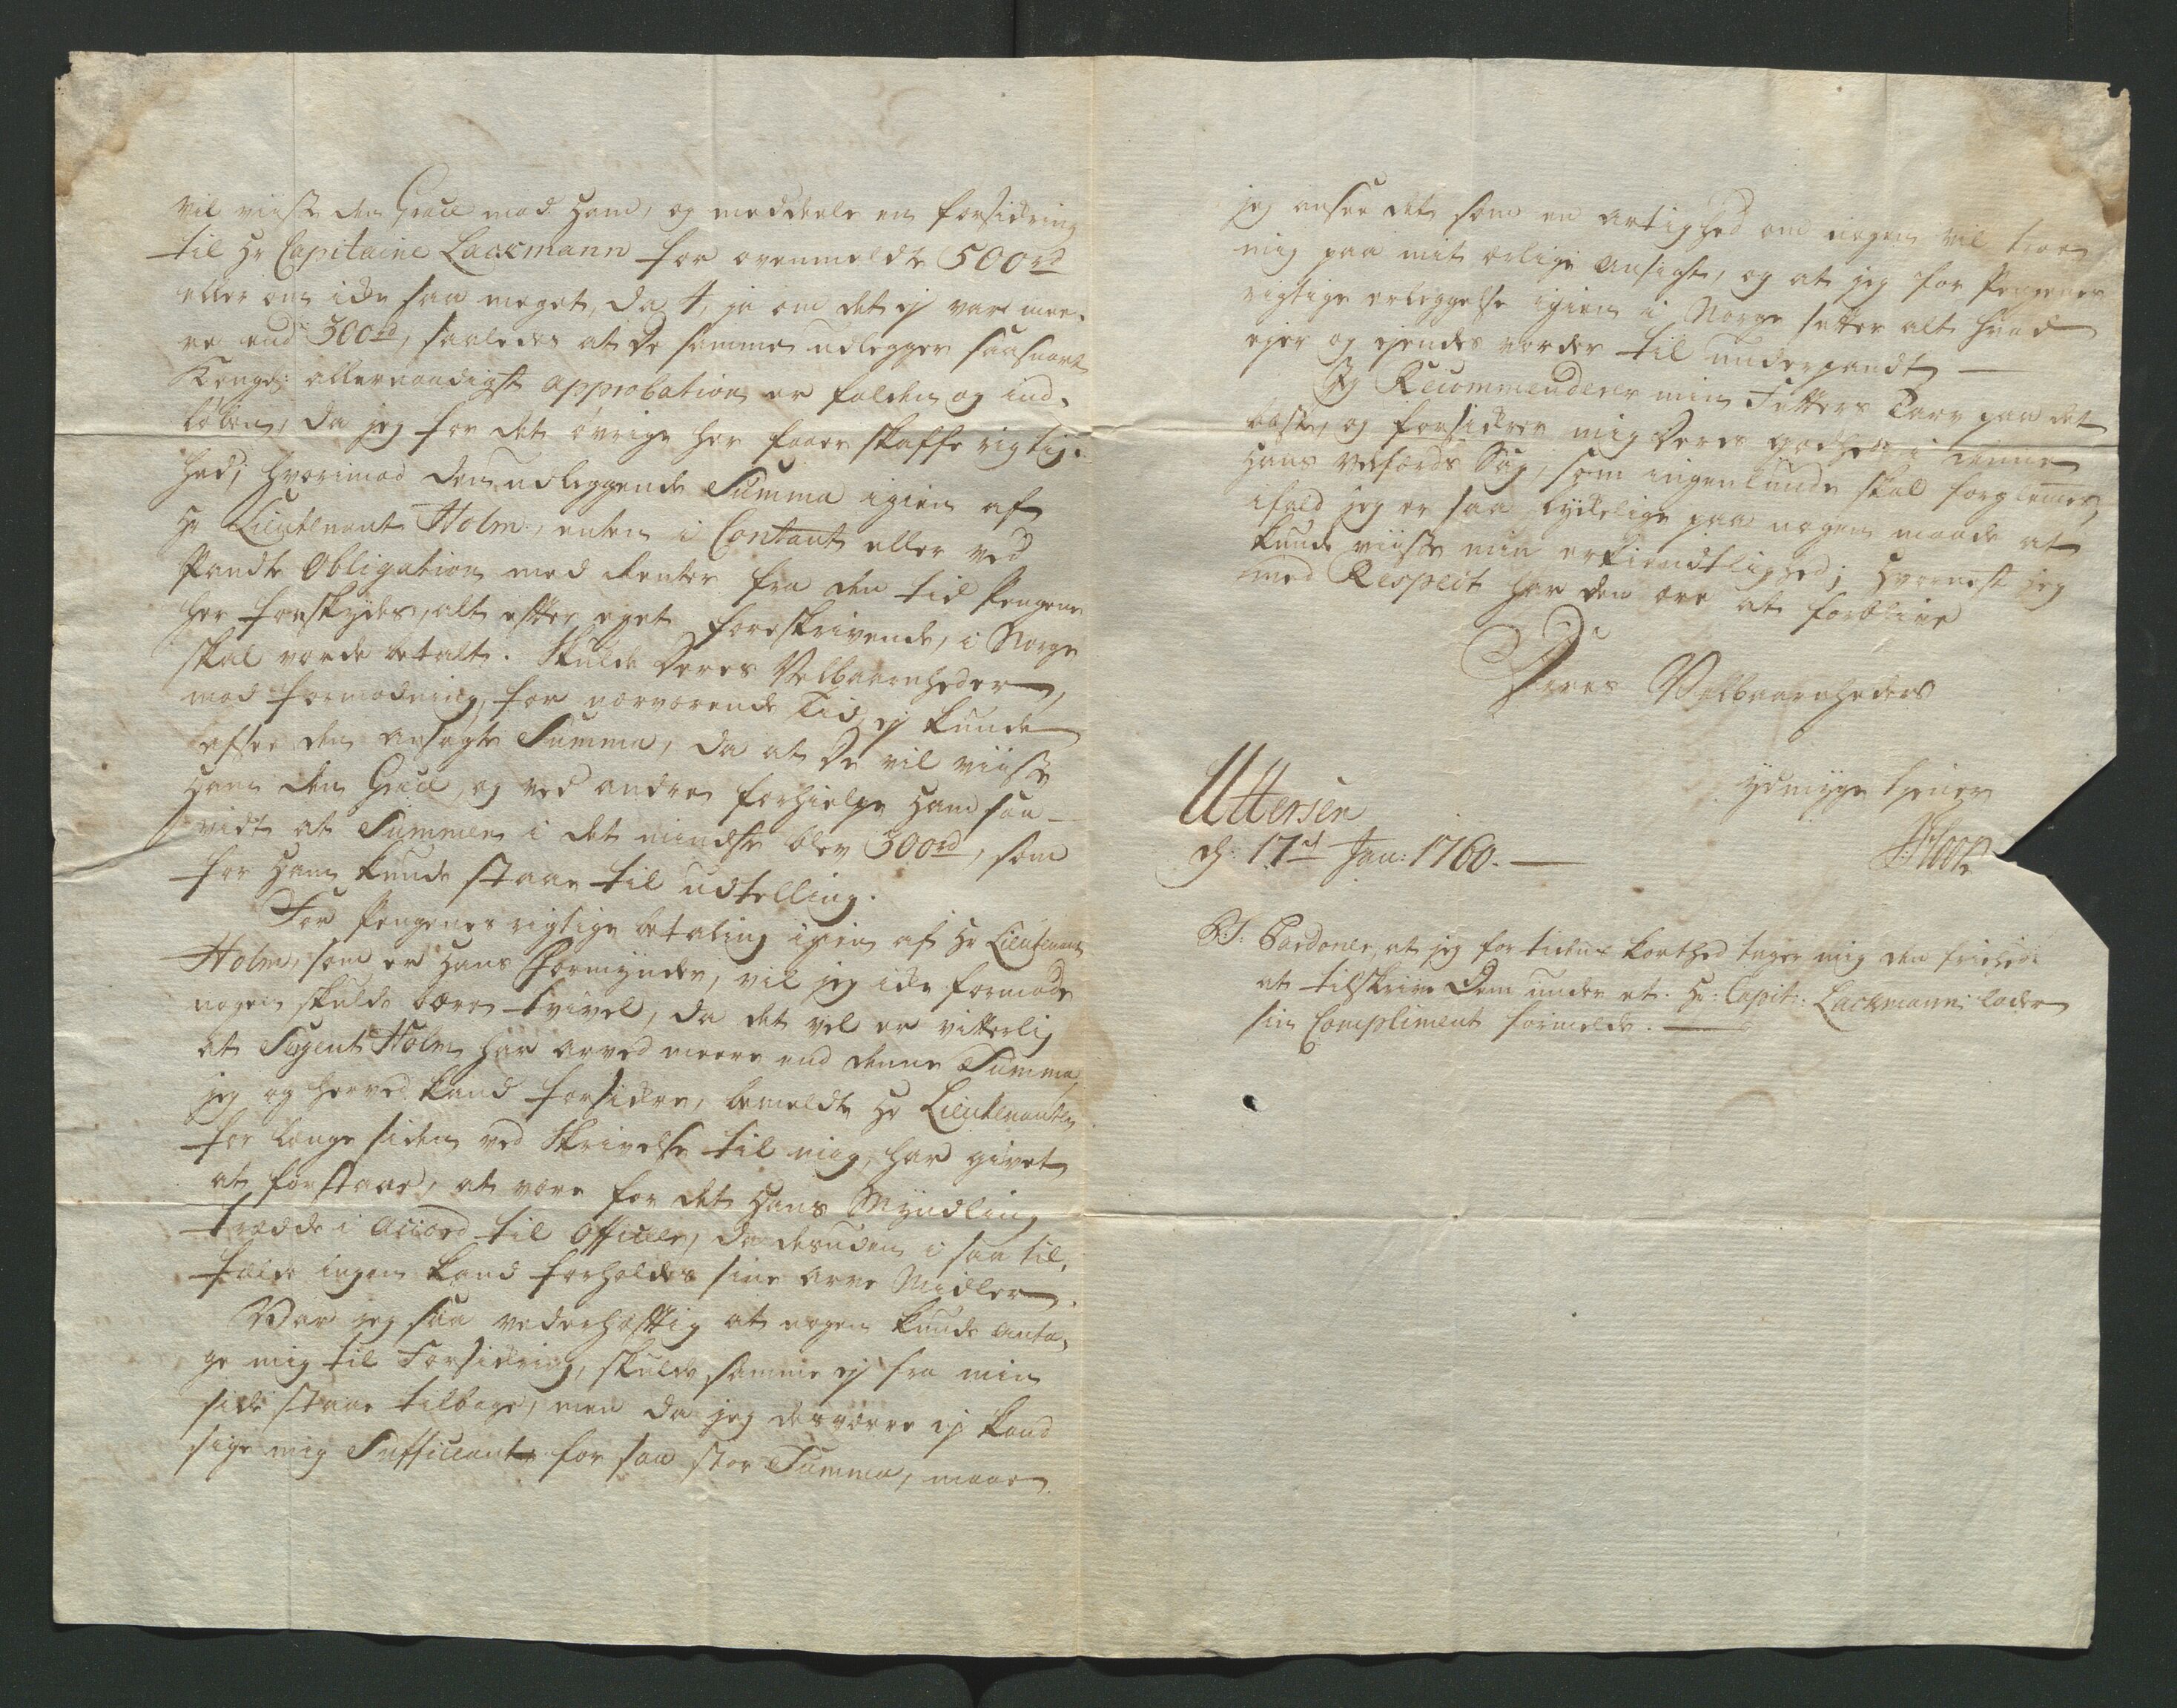 vil viisse den Grace mod ham, og meddeele en forsickring
til Hr Capitaine Lackmann for ovenmeldte 500rd
eller om icke saa meget, da 4, ja om det ej var mee-
re end 300rd, saaledes at De samme udlegger saasnart
Kongl: allernaadigst approbation er falden og ind-
løben, da jeg for det øvrige her faaer skaffe rigtig-
hed; hvorimod den udleggende Summa igien af
Hr Lieutenant Holm, enten i Contant eller ved
Pandte Obligation med Renter fra den tid Pengene
her forskydes, alt efter eget foreskrivende, i Norge
skal vorde betalt. Skulde Deres Velbaarnheder,
mod formodning, for nærværende Tid ej kunde
afsee den ansøgte Summa, da at De vil viisse
ham den Grace, og ved andre forhielpe ham saa-
vidt at Summen i det mindste blev 300rd, som
for ham kunde staae til udtelling.
For Pengenes rigtige betaling igien af Hr Lieutenant
Holm, som er hans Formynder, vil jeg icke formode
nogen skulde bære tvivel, da det vel er vitterlig
at Sergent Holm har arved meere end denne Summa,
jeg og herved kand forsickre, bemeldte Hr Lieutenanten
for længe siden ved Skrivelse til mig, har givet
at forstaae, at være for det hans Myndling
trædde i Accord til Officeer, da desuden i saa til-
fælde ingen kand forholdes sine arve Midler.
Var jeg saa vederhæftig at nogen kunde anta-
ge mig til Forsickring, skulde samme ej fra min
side staae tilbage, men da jeg desværre ej kand
sige mig Sufficant for saa stor Summa, maae
jeg ansee det som en artighed om nogen vil troe
mig paa mit ærlige Ansigt, og at jeg for Pengenes
rigtige erleggelse igien i Norge setter alt hvad
ejer og ejendes vorder til underpandt —
Jeg Recommenderer min Fetters Tarv paa det
beste, og forsickrer mig Deres godhed i denne
hans Velfærds Sag, som ingenlunde skal forglemmes,
ifald jeg er saa lyckelige paa nogen maade at
kunde viisse min erkiendtlighed; hvornest jeg
med Respect har den ære at forblive
Deres Velbaarnheders
ydmyge tjener
Uttersen
d: 17d Jan: 1760. —
P:S: Pardoner, at jeg for tidens korthed tager mig den friehed
at tilskrive Dem under et. Hr: Capit: Lackmann lader
sin Compliment formelde. —